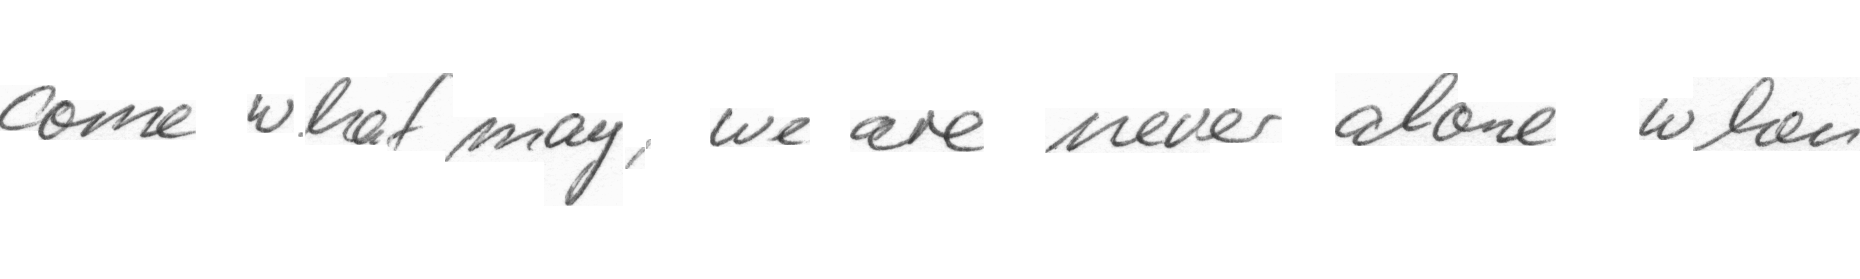 come what may, we are never alone when